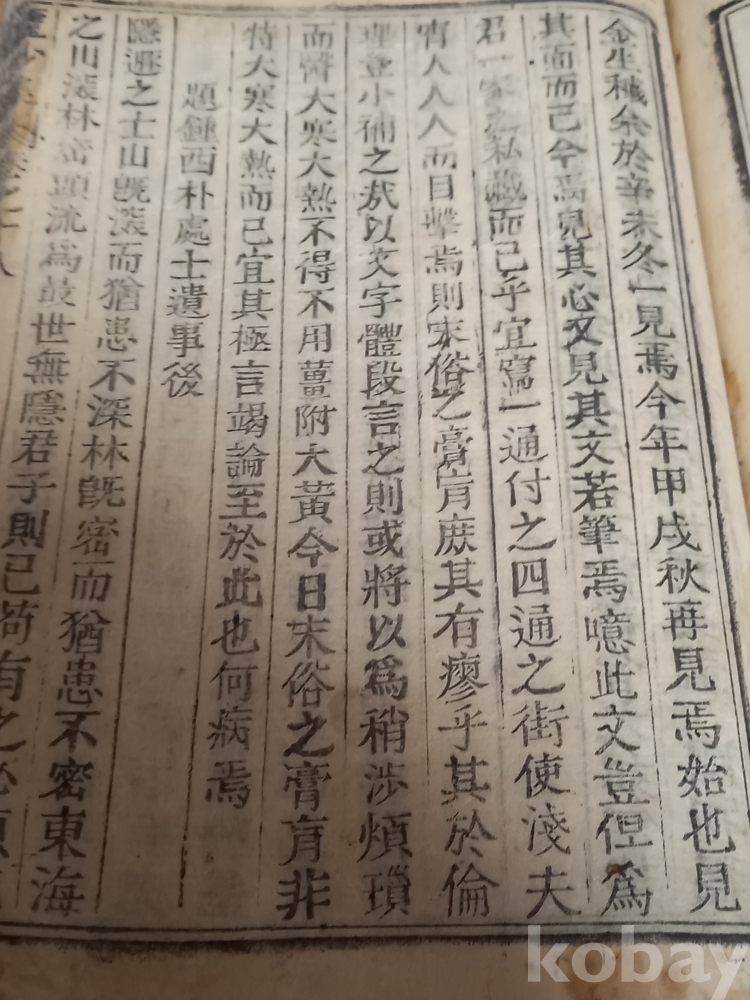 金生穢余於辛未冬一見焉今年甲戌秋再見焉始也見
其面而已今焉見其心又見其文若筆焉噫此文豈但爲
君一家之私藏而已乎宜寫一通付之四通之街使淺夫
宵人人人而目擊焉則末俗之膏肓庶其有瘳乎其於倫
理豈小補之哉以文字體段言之則或將以爲稍涉煩瑣
而醫大寒大熱不得不用薑附大黃今日末俗之膏肓非
特大寒大熱而已宜其極言竭論至於此也何病焉
題鍾西朴處士遺事後
隱遯之士山旣深而猶患不深林旣密而猶患不密東海
之山深林密頭流爲最世無隱君子則已苟有之必
卷之十八
kobay